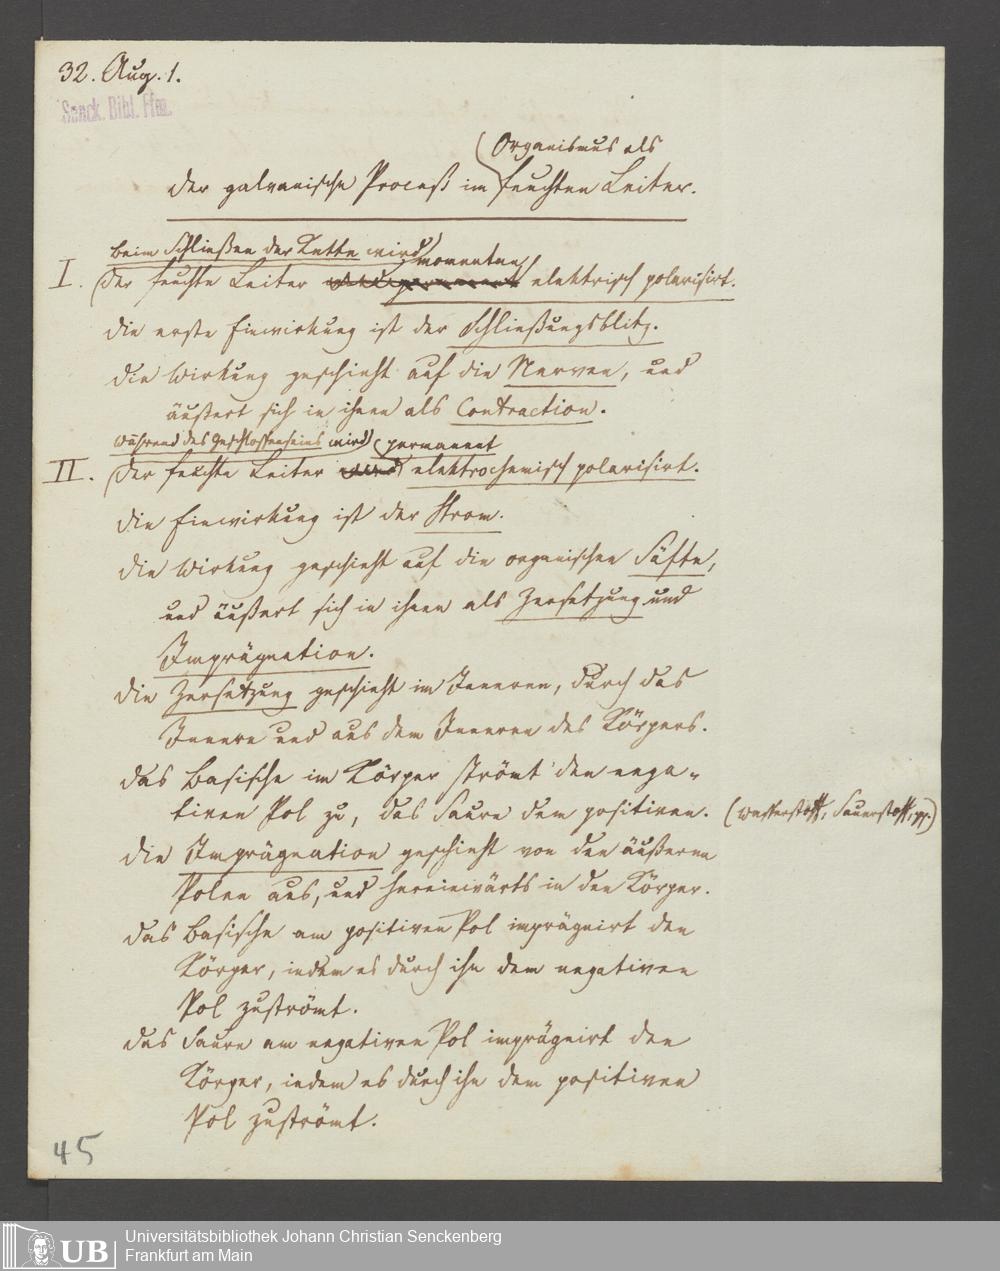 32. Aug. 1.
Senck. Bibl. Ffm.
Organismus als
der galvanische Proceß im feuchten Leiter.
beim Schließen der Kette wird momentan
I. Der feuchte Leiter wird permanent elektrisch polarisirt.
die erste Einwirkung ist der Schließungsblitz.
die Wirkung geschieht auf die Nerven, und
äußert sich in ihnen als Contraction.
während des Geschlossenseins wird permanent
II. Der feuchte Leiter wird elektrochemisch polarisirt.
die Einwirkung ist der Strom.
die Wirkung geschieht auf die organischen Säfte,
und äußert sich in ihnen als Zersetzung und
Imprägnation.
die Zersetzung geschieht im Inneren, durch das
Innere und aus dem Inneren des Körpers.
das Basische im Körper strömt den nega-
tiven Pol zu, das Saure dem positiven. (Wasserstoff, Sauerstoff, pp.)
die Imprägnation geschieht von den äußeren
Polen aus, und hereinwärts in den Körper.
das Basische am positiven Pol imprägnirt den
Körper, indem es durch ihn dem negativen
Pol zuströmt.
das Saure am negativen Pol imprägnirt den
Körper, indem es durch ihn dem positiven
Pol zuströmt.
45
UB
Universitätsbibliothek Johann Christian Senckenberg
Frankfurt am Main